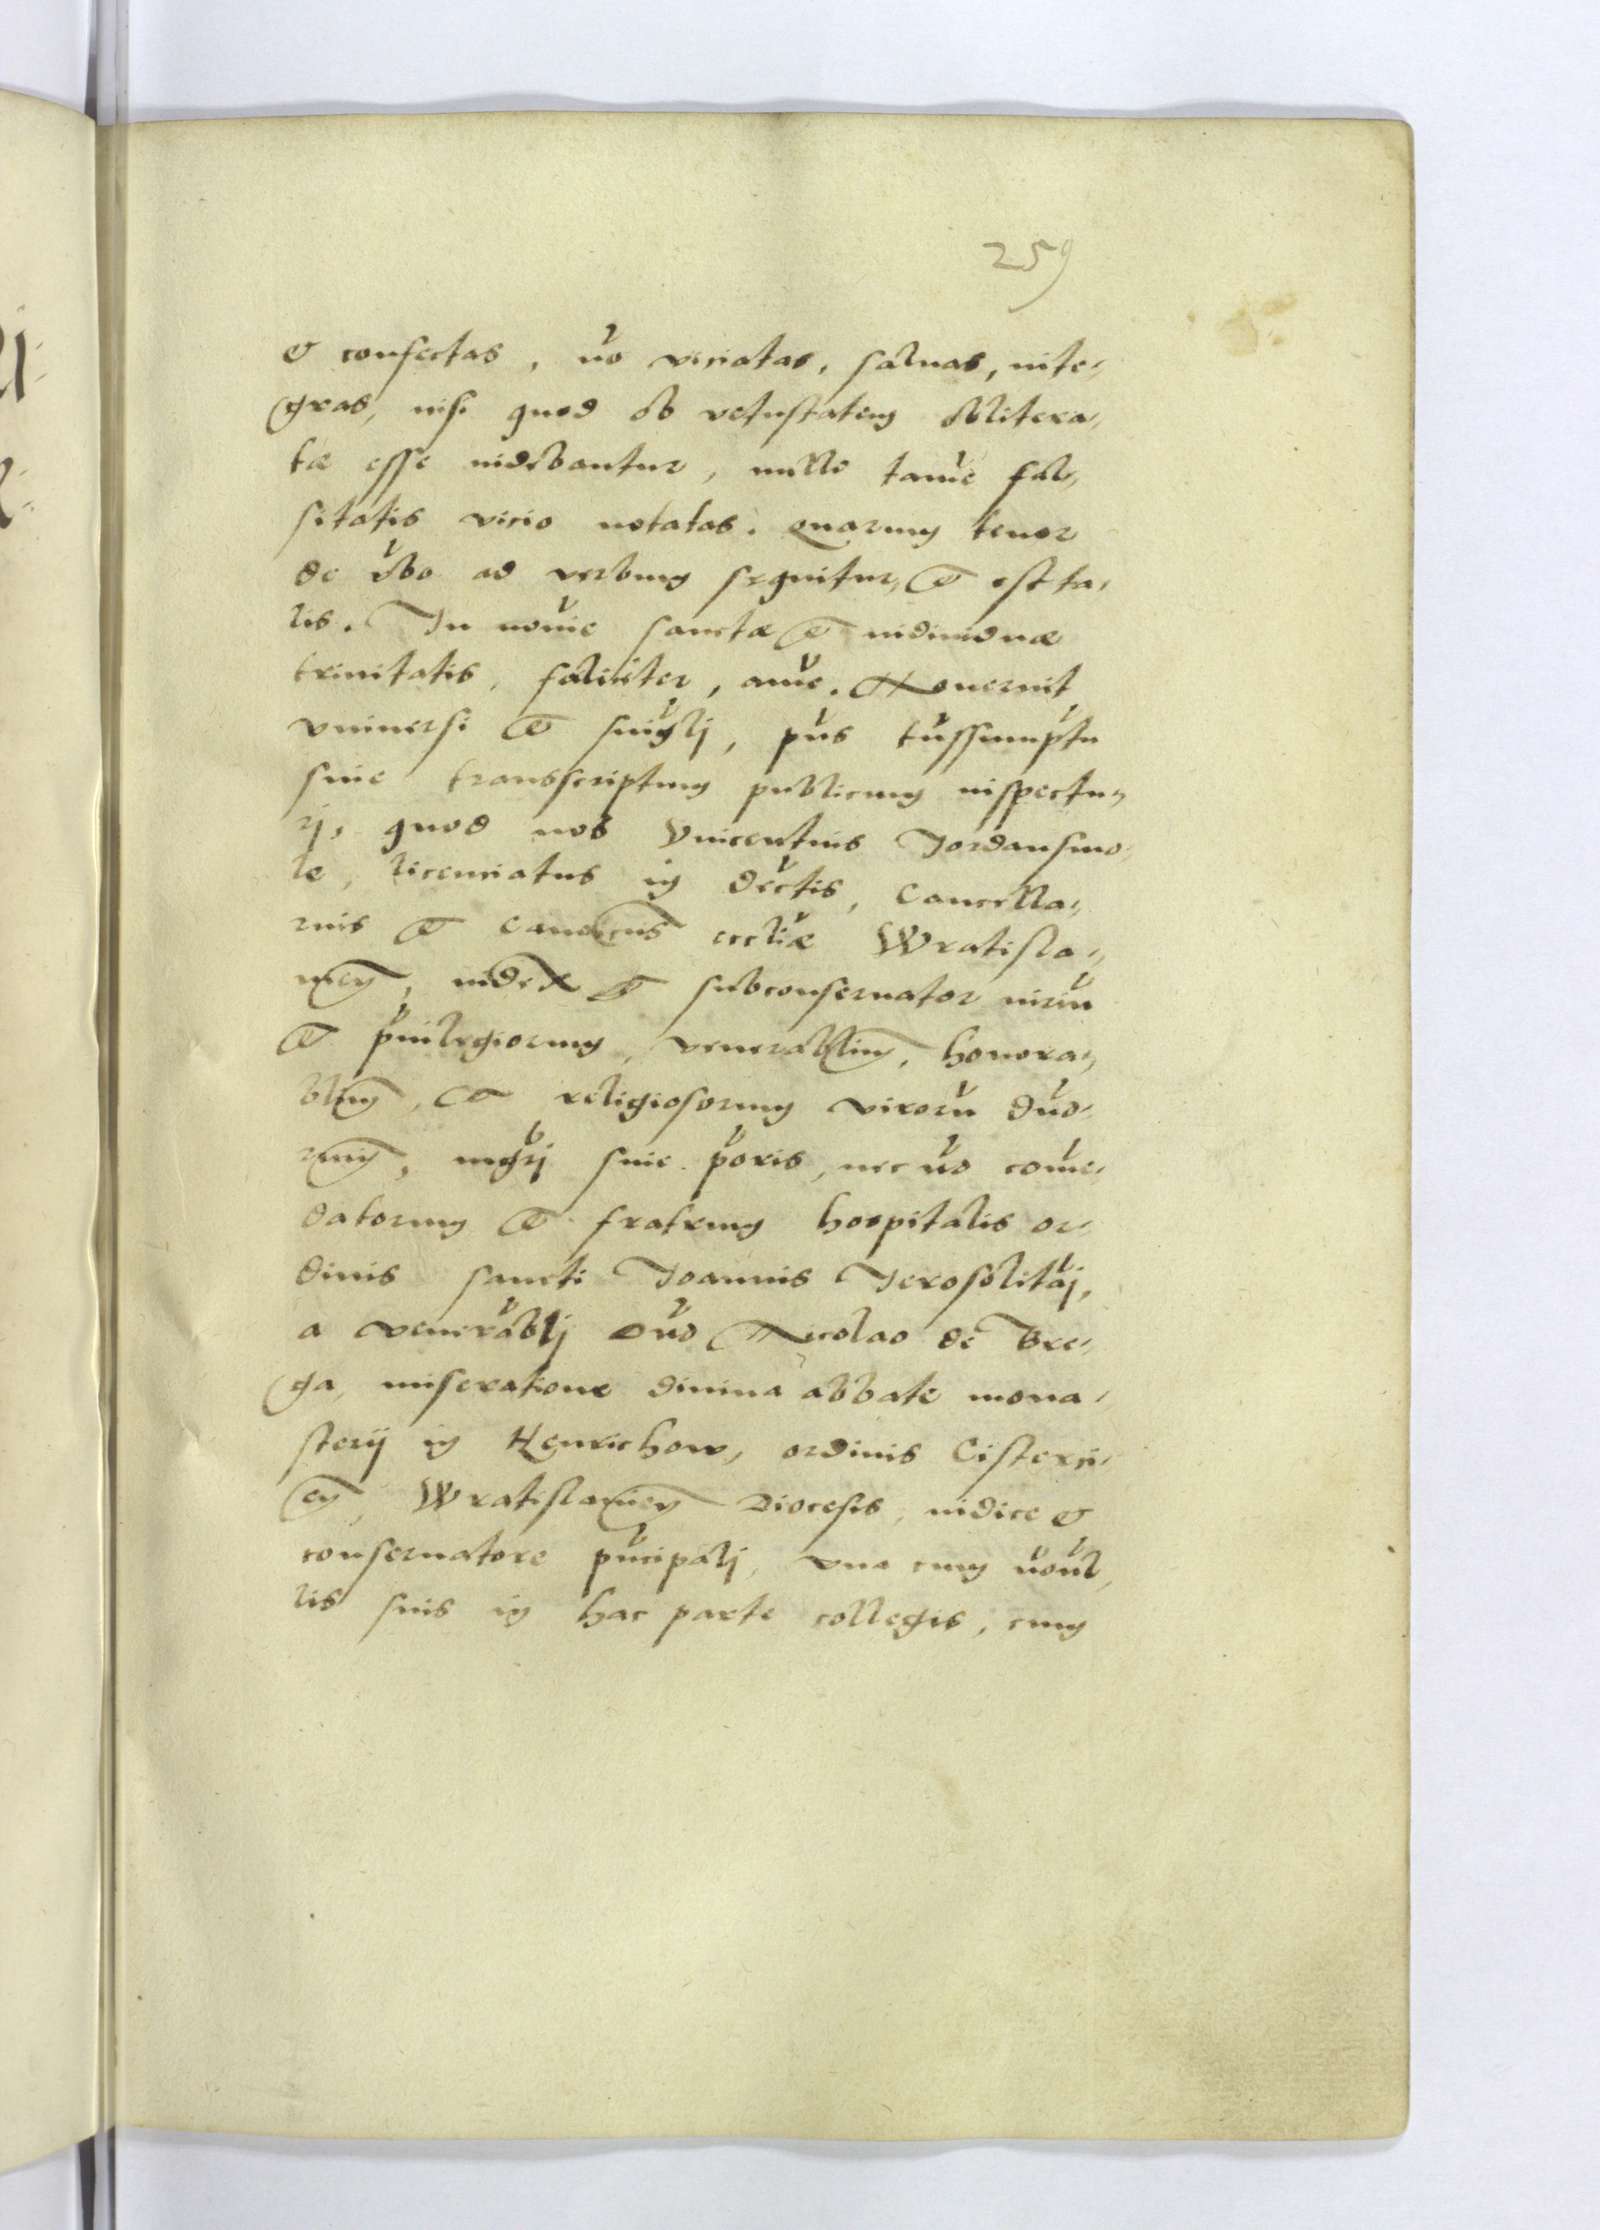 259
& confectas, no viciatas, saluas, inte-
gras, nisi quod ob vetustatem oblitera-
tæ esse uidebantur, nullo tame fal-
sitatis vicio notatas. Quarum tenor
de vbo ad verbum sequitur, & est ta-
lis. In noie sanctæ & indiuiduæ
trinitatis, faliciter, ame. Nouerint
vniuersi & singlj, pns tnssumptu
siue transscriptum publicum inspectu-
rj, quod nos Vincentius Jordansmo-
le, licenciatus in dectis, Cancella-
rius & Canonicus eccliæ Wratisla-
uien, iudex & subconseruator iuriu
& priuilegiorum, venerabilium, honora-
blium, & religiosorum viroru dno-
rum, mgrj siue prioris, nec no come-
datorum & fratrum hospitalis or-
dinis sancti Joannis Jerosolitaj,
a venerablj Dno Nicolao de Bre-
ga, miseratione diuina abbate mona-
sterij in Henrichow, ordinis Cisterci-
en, Wratislauien Diocesis, iudice &
conseruatore pncipalj, vna cum nonul-
lis suis in hac parte collegis, cum